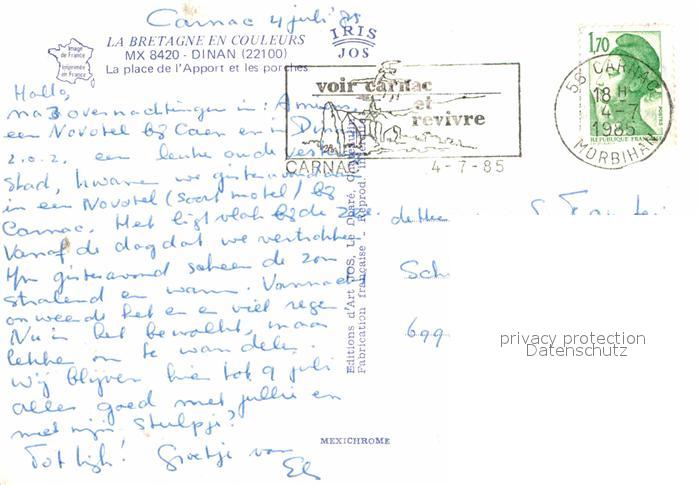 Carnac 4 juli '85
LA BRETAGNE EN COULEURS
MX 8420 - DINAN (22100)
La place de l'Apport et les porches
Image de France
Imprimée en France
IRIS
JOS
Hallo,
na 3 overnachtingen in: Amiens
een Novotel bij Caen en in Dinan
z.o.z. een leuke oude
stad, kwamen we gisteravond
in een Novotel (soort motel) bij
Carnac. Het ligt vlak bij de zee.
Vanaf de dag dat we vertrokken
t/m gisteravond scheen de zon
stralend en warm. Vannacht
onweerde het en er viel regen
Nu is het bewolkt, maar
lekker om te wandelen.
Wij blijven hier tot 9 juli
alles goed met jullie en
met mijn stulpje?
Tot kijk! Groetje van
Els
voir carnac
et
revivre
CARNAC 4-7-85
1,70
REPUBLIQUE FRANCAISE
POSTES
56 CARNAC
18 H
4-7
1985
MORBIHAN
Editions d'Art JOS, Le Doaré, Châteaulin
Fabrication française - Reprod. interdite
de Hee
Sch
699
privacy protection
Datenschutz
MEXICHROME